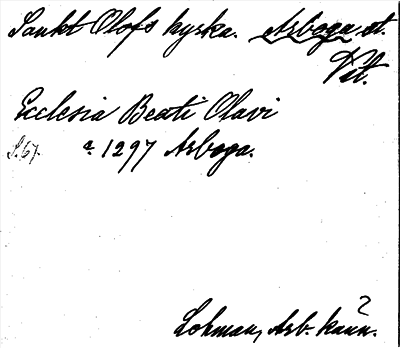 Sankt Olofs kyrka. Arboga st.
Vstl.
Ecclesia Beati Olavi
S. 67. a. 1297 Arboga.
?
Lohman, Arb. känn.